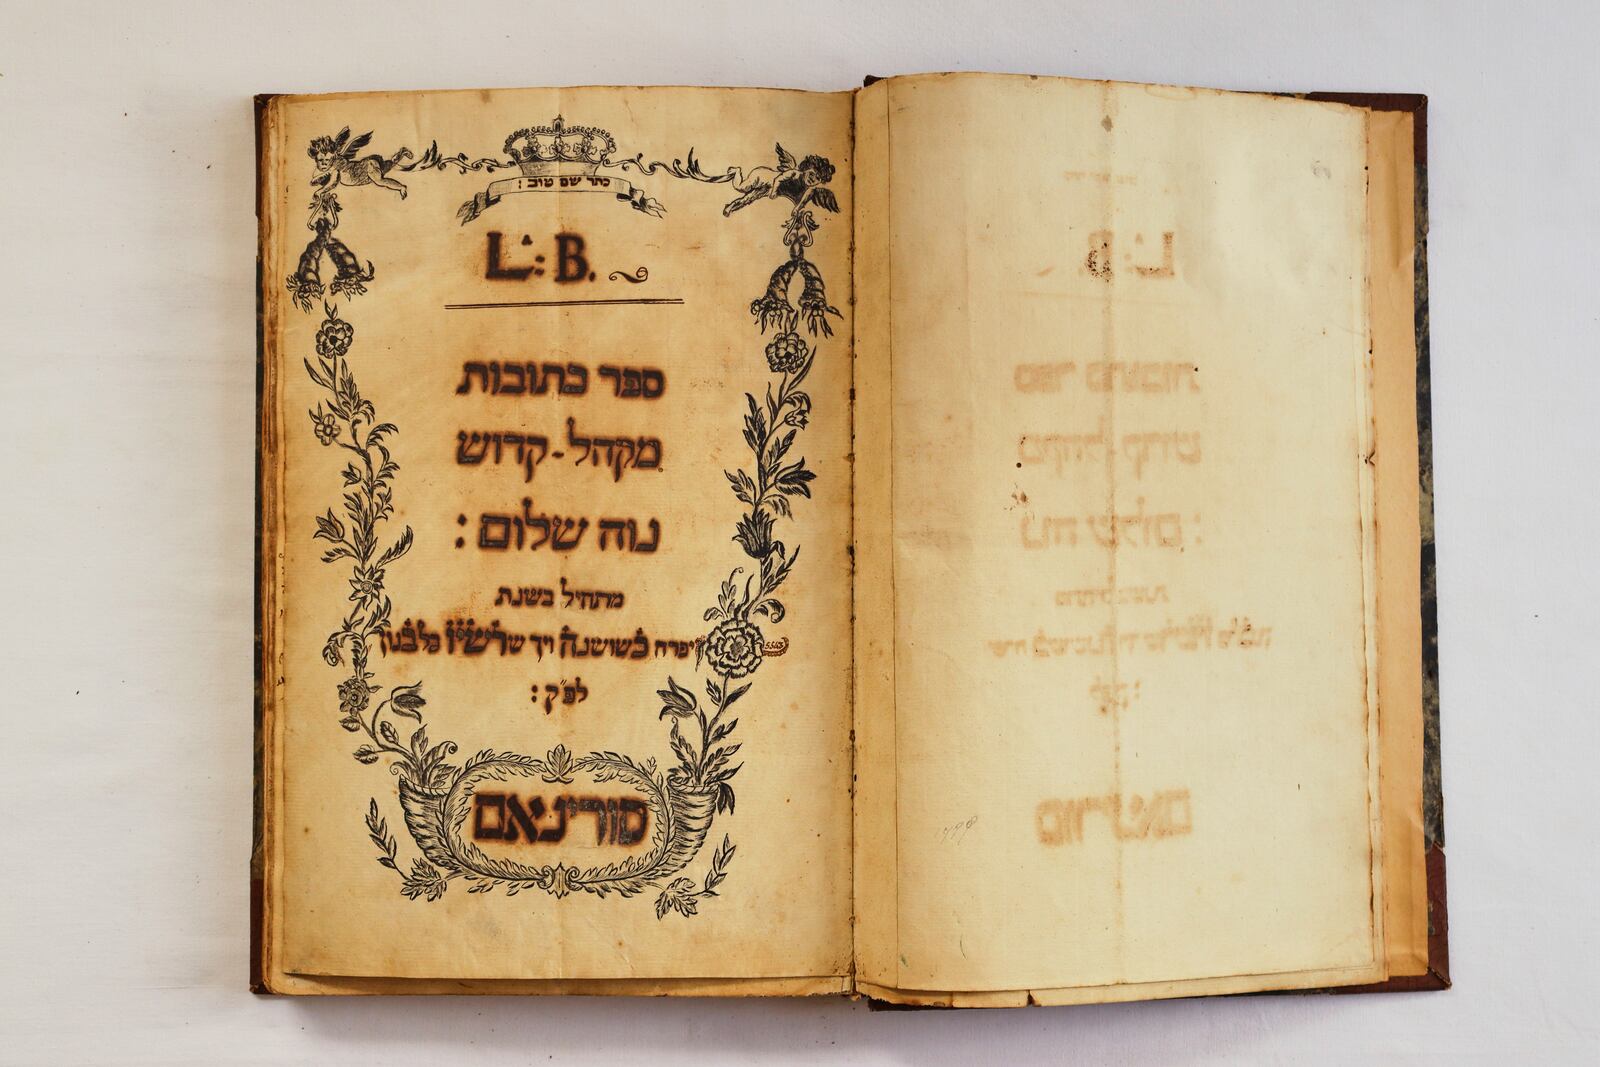 כתר שם טוב :
L: B.
ספר כתובות
מקהל-קדוש
נוה שלום :
מתחיל בשנת
יפרח כשושנה ויך שרשיו כלבנון
לפ"ק :
סורינאם